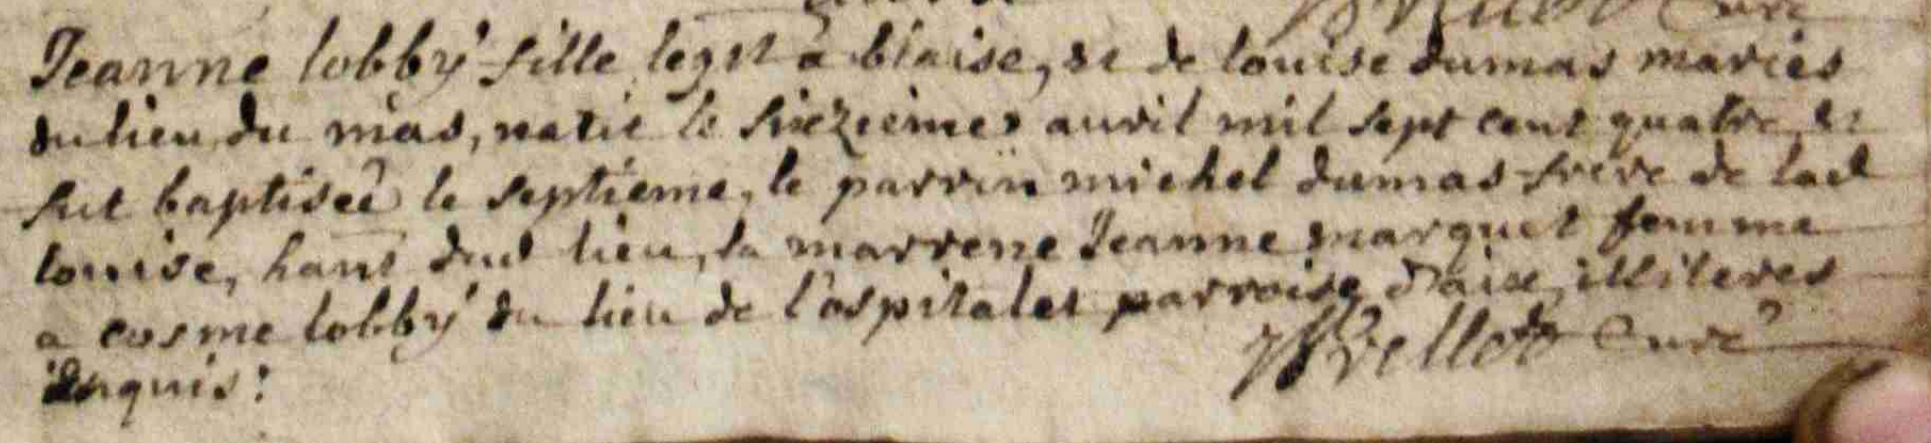 Jeanne lobby fille legit a blaise, et de louise dumas mariés
du lieu du mas, natie le sixzeiemes auvril mil sept cent quatre et
fut baptiseé le septieme, le parrin michel dumas frere de lad
louise, hant dud lieu, la marrene Jeanne marquet femme
a cosme lobby du lieu de l'ospitalet parroise d'aixe, illiteres
enquis:
Curé